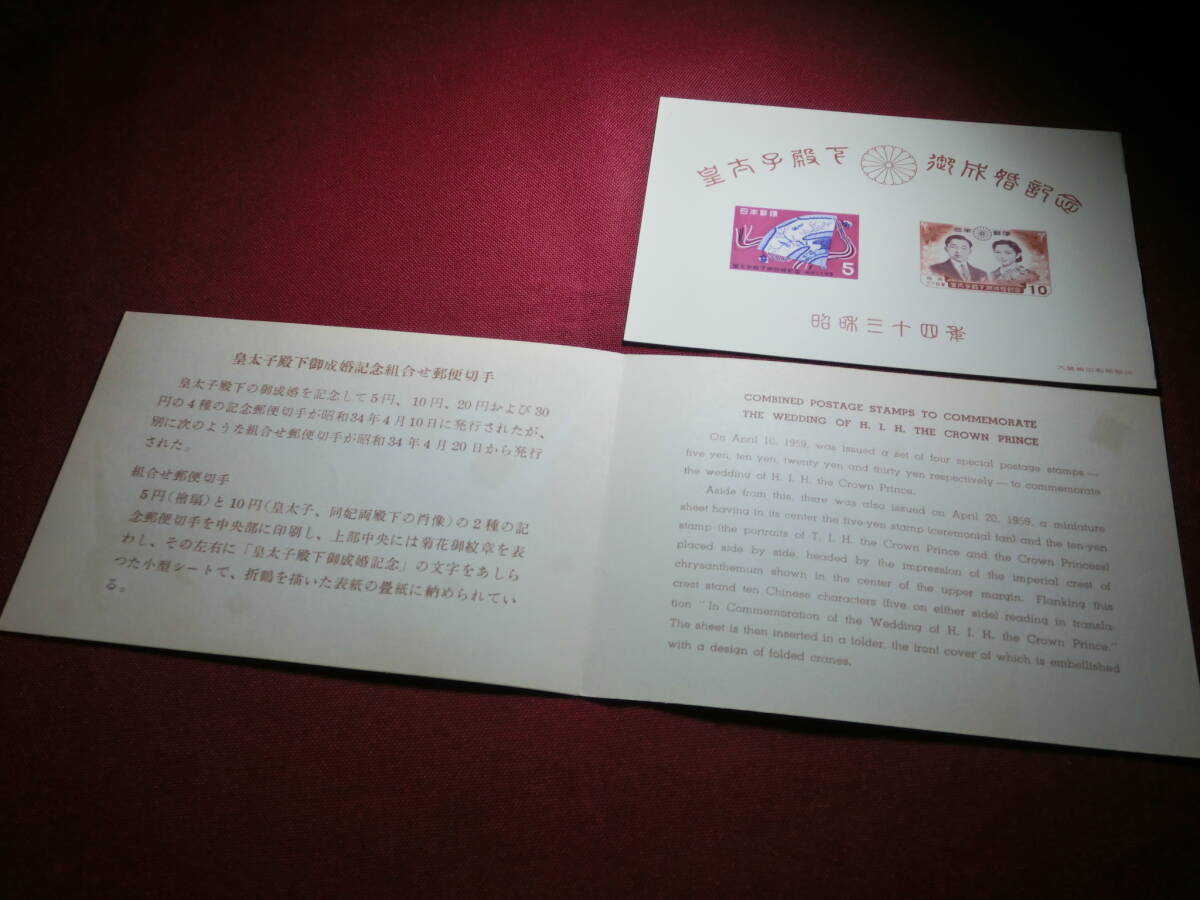 皇太子殿下 御成婚記念
日本郵便
5
日本郵便
皇太子殿下御成婚記念
10
昭和三十四年
大蔵省印刷局製造
皇太子殿下御成婚記念組合せ郵便切手
皇太子殿下の御成婚を記念して5円、10円、20円および30
円の4種の記念郵便切手が昭和34年4月10日に発行されたが、
別に次のような組合せ郵便切手が昭和34年4月20日から発行
された。
組合せ郵便切手
5円(檜扇)と10円(皇太子、同妃両殿下の肖像)の2種の記
念郵便切手を中央部に印刷し、上部中央には菊花御紋章を表
わし、その左右に「皇太子殿下御成婚記念」の文字をあしら
つた小型シートで、折鶴を描いた表紙の畳紙に納められてい
る。
COMBINED POSTAGE STAMPS TO COMMEMORATE
THE WEDDING OF H. I. H. THE CROWN PRINCE
On April 10, 1959, was issued a set of four special postage stamps—
five yen, ten yen, twenty yen and thirty yen respectively—to commemorate
the wedding of H. I. H. the Crown Prince.
Aside from this, there was also issued on April 20, 1959, a miniature
sheet having in its center the five-yen stamp (ceremonial fan) and the ten-yen
stamp (the portraits of T. I. H. the Crown Prince and the Crown Princess)
placed side by side, headed by the impression of the imperial crest of
chrysanthemum shown in the center of the upper margin. Flanking this
crest stand ten Chinese characters (five on either side) reading in transla-
tion "In Commemoration of the Wedding of H. I. H. the Crown Prince."
The sheet is then inserted in a folder, the front cover of which is embellished
with a design of folded cranes.